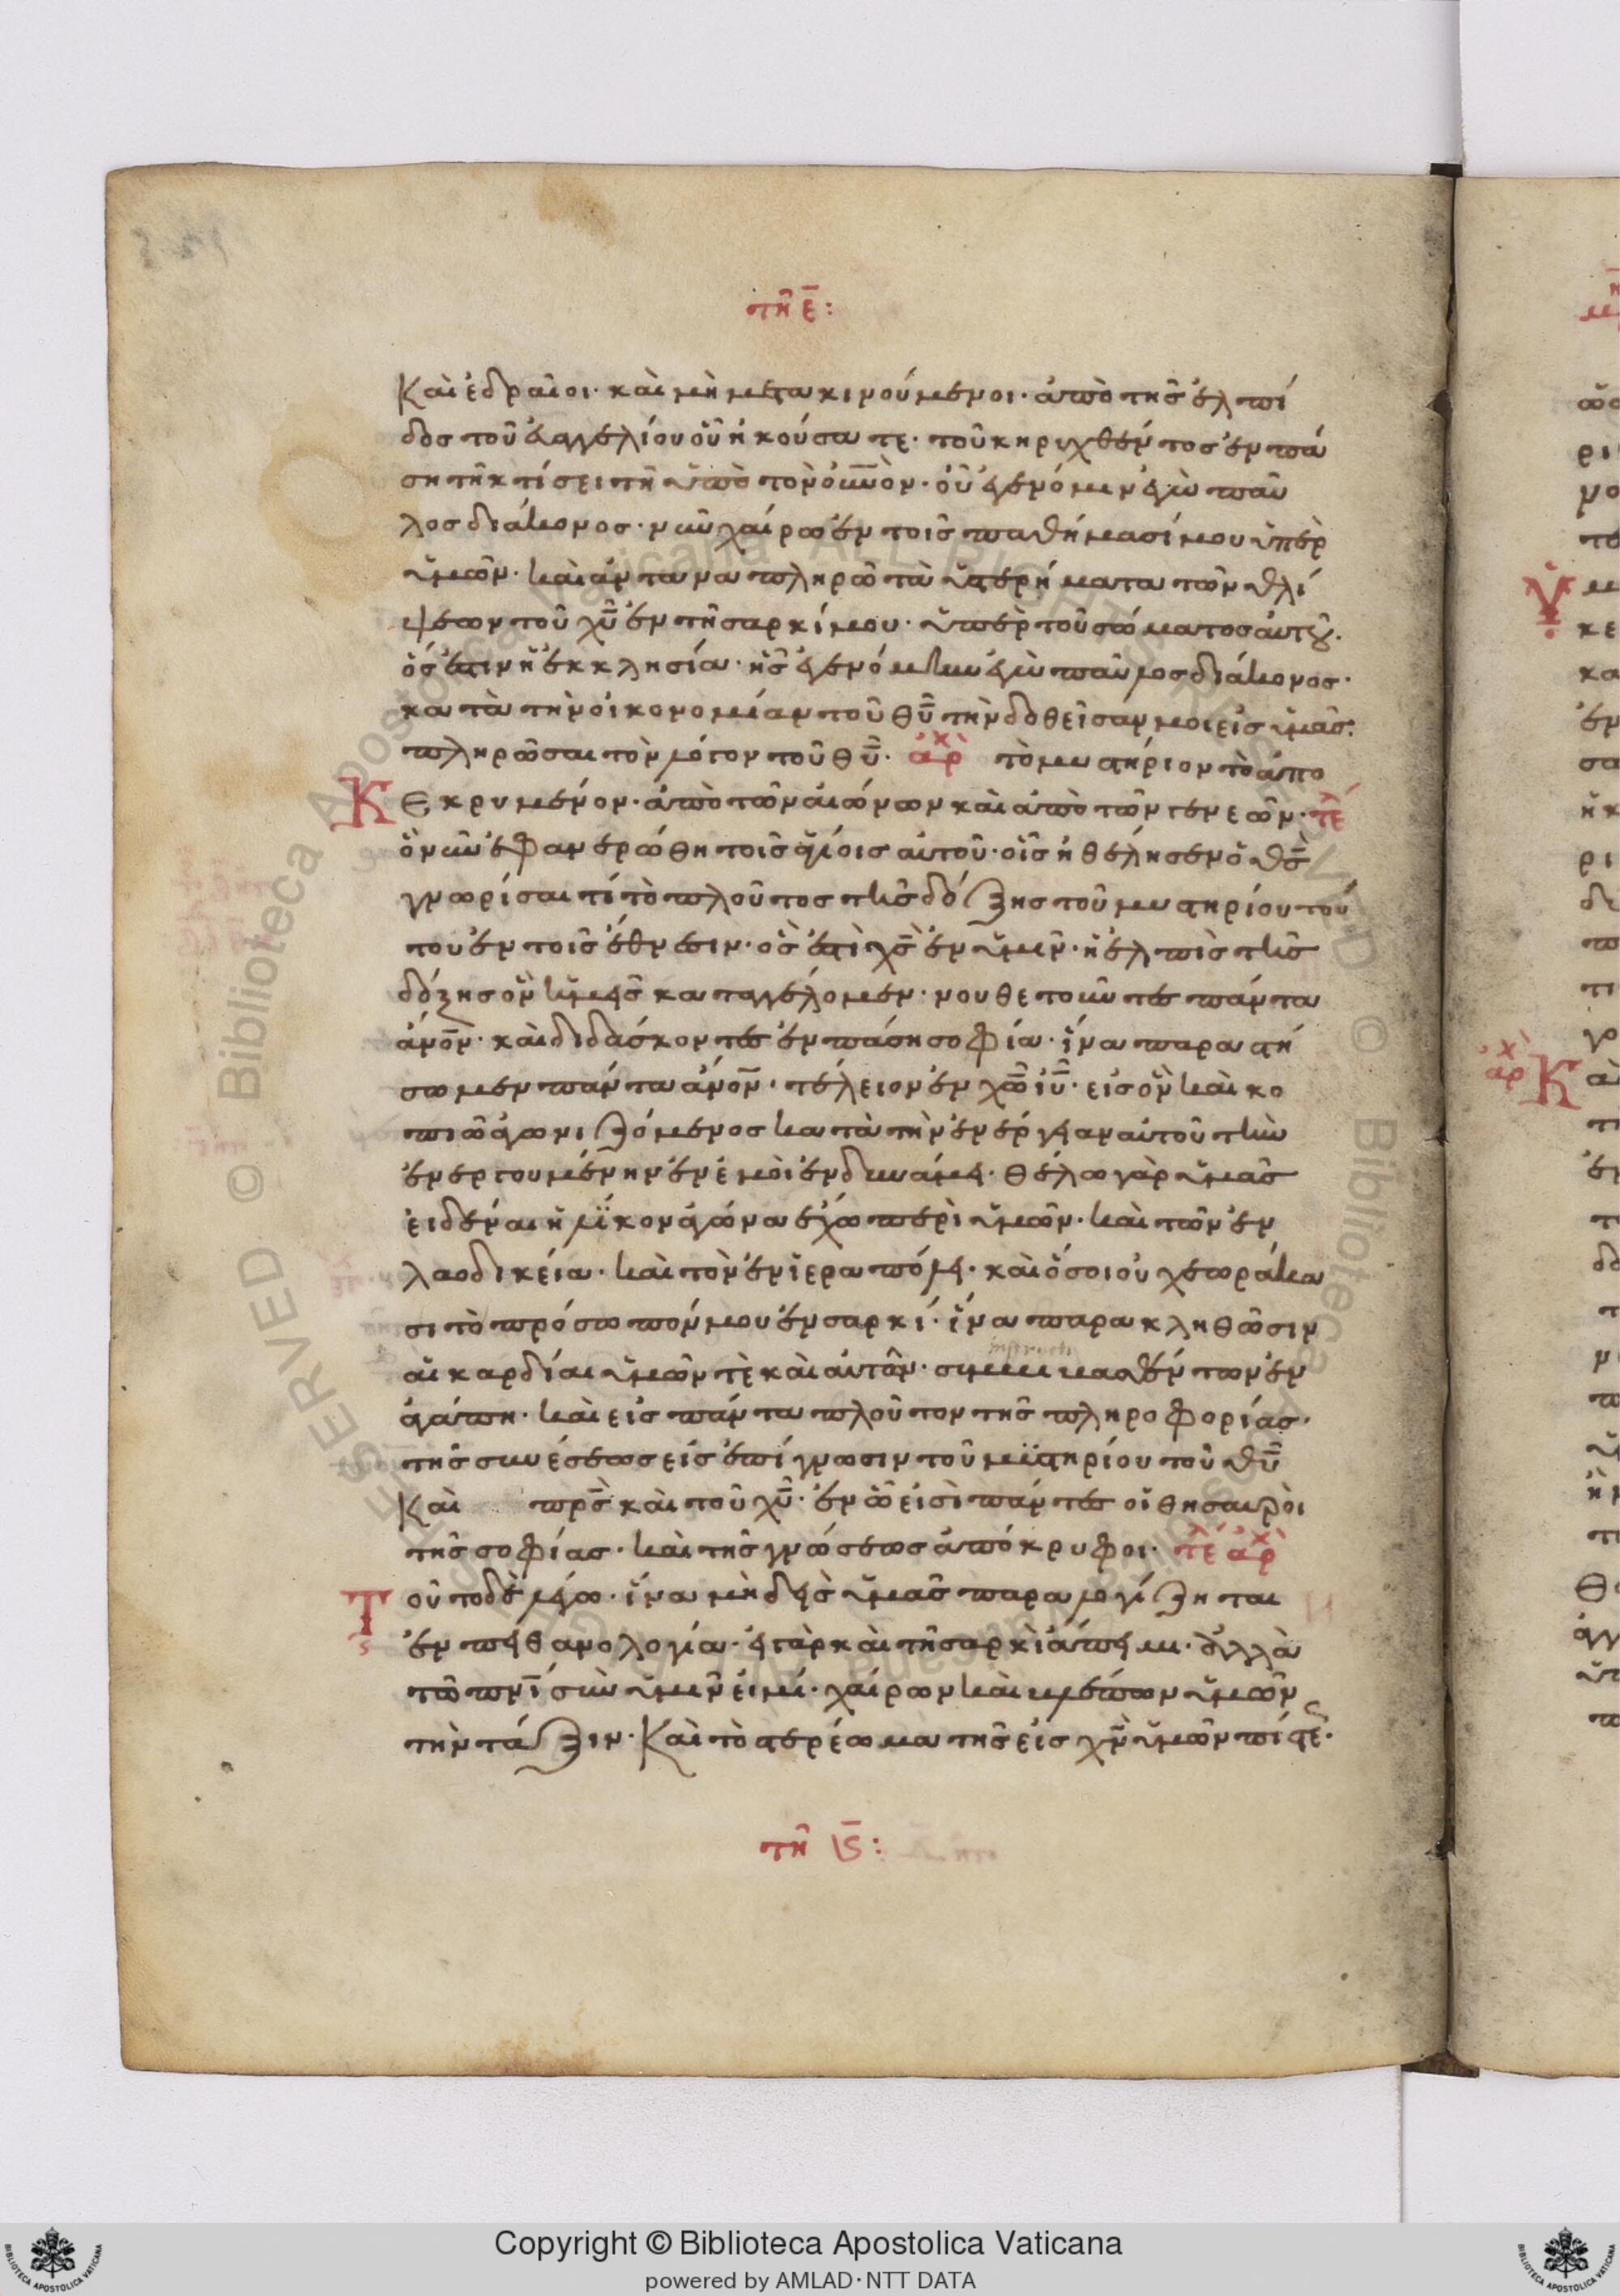 τῇ ε̄:
Καὶ ἑδραῖοι· καὶ μὴ μετακινούμενοι· ἀπὸ τῆς ἐλπί
δος τοῦ εὐαγγελίου οὗ ἠκούσατε· τοῦ κηρυχθέντος ἐν πά
ση τῆ κτίσει τῆ ὑπὸ τὸν οὐ̅νὸν· οὗ ἐγενόμην ἐγὼ παῦ
λος διάκονος· νῦν χαίρω ἐν τοῖς παθήμασί μου ὑπὲρ
ὑμῶν· καὶ ἀνταναπληρῶ τὰ ὑστερήματα τῶν θλί
ψεων τοῦ χῦ̅ ἐν τῆ σαρκί μου· ὑπὲρ τοῦ σώματος αὐτοῦ·
ὅς ἐστιν ἡ ἐκκλησία· ἧς ἐγενόμην ἐγὼ παῦλος διάκονος·
κατὰ τὴν οἰκονομίαν τοῦ θῦ̅ τὴν δοθεῖσαν μοι εἰς ὑμᾶς·
πληρῶσαι τὸν λόγον τοῦ θῦ̅· ἀρχ τὸ μυστήριον τὸ ἀπο
Κ εκρυμένον· ἀπὸ τῶν αἰώνων καὶ ἀπὸ τῶν γενεῶν· τε
ὃ νῦν ἐφανερώθη τοῖς ἁγίοις αὐτοῦ· οἷς ἠθέλησεν ὁ θς̅
γνωρίσαι τί τὸ πλοῦτος τῆς δόξης τοῦ μυστηρίου τού
του ἐν τοῖς ἔθνεσιν· ὅς ἐστὶ χς̅ ἐν ὑμῖν· ἡ ἐλπὶς τῆς
δόξης ὃν ἡμεῖς καταγγέλομεν· νουθετοῦντες πάντα
ἄνο̅ν· καὶ διδάσκοντες ἐν πάση σοφία· ἵνα παραστή
σωμεν πάντα ἄνο̅ν· τέλειον ἐν χῶ̅ ἰῦ̅· εἰς ὃν καὶ κο
πιῶ ἀγωνιζόμενος κατὰ τὴν ἐνέργειαν αὐτοῦ τὴν
ἐνεργουμένην ἐν ἐμοὶ ἐν δυνάμει· θέλω γὰρ ὑμᾶς
εἰδέναι ἡλίκον ἀγώνα ἔχω περὶ ὑμῶν· καὶ τῶν ἐν
λαοδικεία· καὶ τὸν ἐν ἱεραπόλει· καὶ ὅσοι οὐχ ἑωράκα
σι τὸ πρόσωπόν μου ἐν σαρκί· ἵνα παρακληθῶσιν
αἱ καρδίαι ὑμῶν τὲ καὶ αὐτῶν· συμβιβασθέντων ἐν
ἀγάπη· καὶ εἰς πάντα πλοῦτον τῆς πληροφορίας·
τῆς συνέσεως εἰς ἐπίγνωσιν τοῦ μϋστηρίου τοῦ θῦ̅
Καὶ πρς̅ καὶ τοῦ χῦ̅· ἐν ᾧ εἰσὶ πάντες οἱ θησαυροὶ
τῆς σοφίας· καὶ τῆς γνώσεως ἀπόκρυφοι· τε ἀρχ
Τ οῦτο δὲ λέγω· ἵνα μὴ δεὶς ὑμᾶς παραλογίζηται
ἐν πειθανολογία· εἰ γὰρ καὶ τῆ σαρκὶ ἄπειμι· ἀλλὰ
τῶ πνι̅ σὺν ὑμῖν εἰμί· χαίρων καὶ βλέπων ὑμῶν
τὴν τάξιν· Καὶ τὸ στερέωμα τῆς εἰς χν̅ ὑμῶν πίστε·
τῇ ις̅: